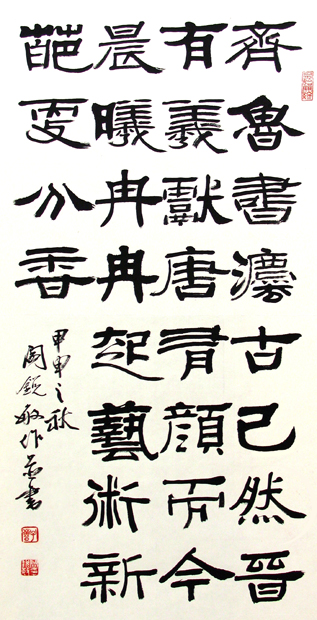 齊魯書灋古已然晉
有羲獻唐有顏而今
晨曦冉冉起藝術新
葩更分香
甲申之秋
閻銳敏作並書